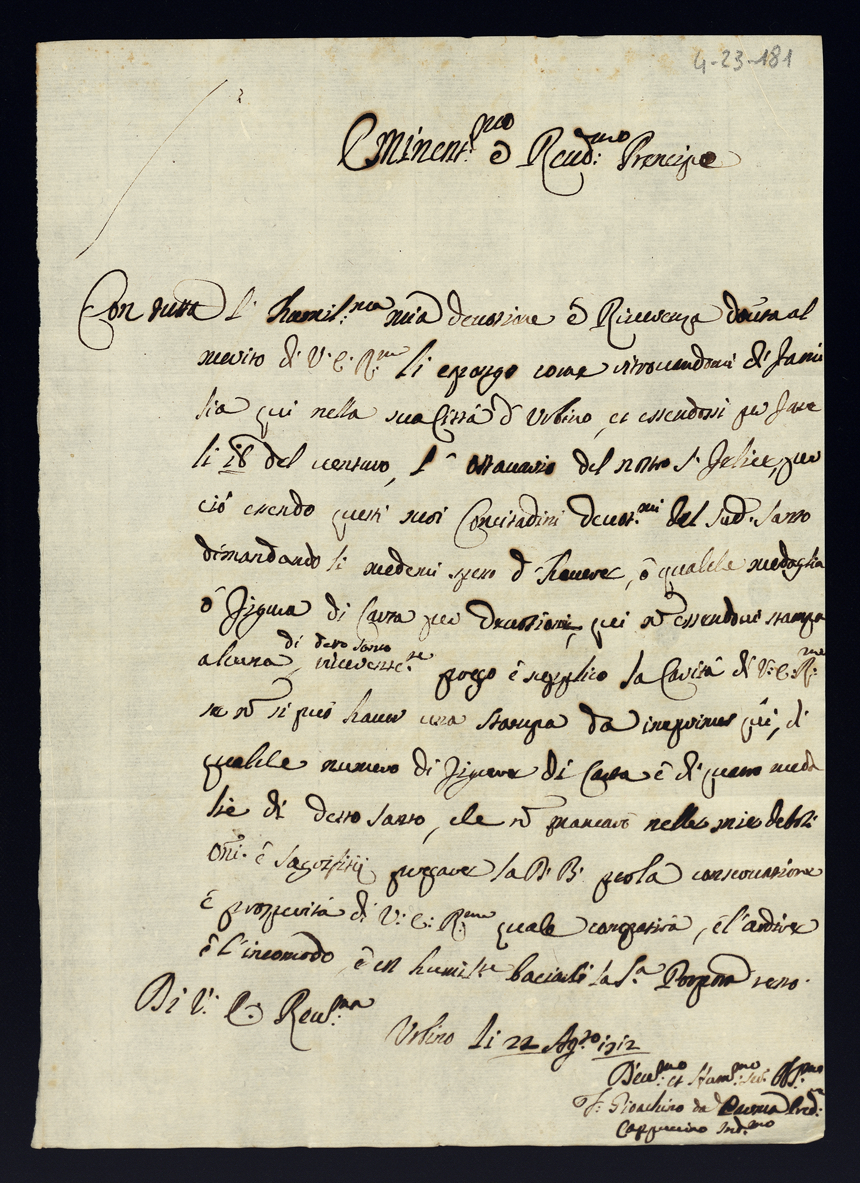 4-23-181
Eminent.mo è Reud.mo Prencipe
Con tutta l'humil.ma mia deuotione è Riuerenza douta al
merito di V: E: R.ma li espongo come ritrouandomi di fami
lia qui nella sua Città d'Urbino, et essendosi per fare
li 18 del uenturo, l'ottauario del nostro S. Felice, per
ciò essendo questi suoi Concitadini deuot.mi del sud. Santo
dimandando li medemi spero d'hauere, ò qualche medaglia
ò figura di Carta per deuotione, qui nō essendoui stampa
alcuna di detto Santo, priego è supplico la Carità di V: E: R.ma
se nō si può hauer una stampa da imprimer qui, di
qualche numero di figure di Carta è di quatro meda
lie di detto Santo, che nō mancarò nelle mie deboli
oni è sagrifitij pregare la D: B: p la conseruatione
è prosperità di V: E: R.ma quale compatirà, è l'ardire
è l'incomodo, è cō humil.te baciarli la S.a Porpora resto.
Di V. E. Reu.ma
Urbino li 22 Ag.to 1712
Deu.mo et Hum.mo Ser. Oss.mo
F. Gioachino da Pred.
Cappuccino Ind.mo